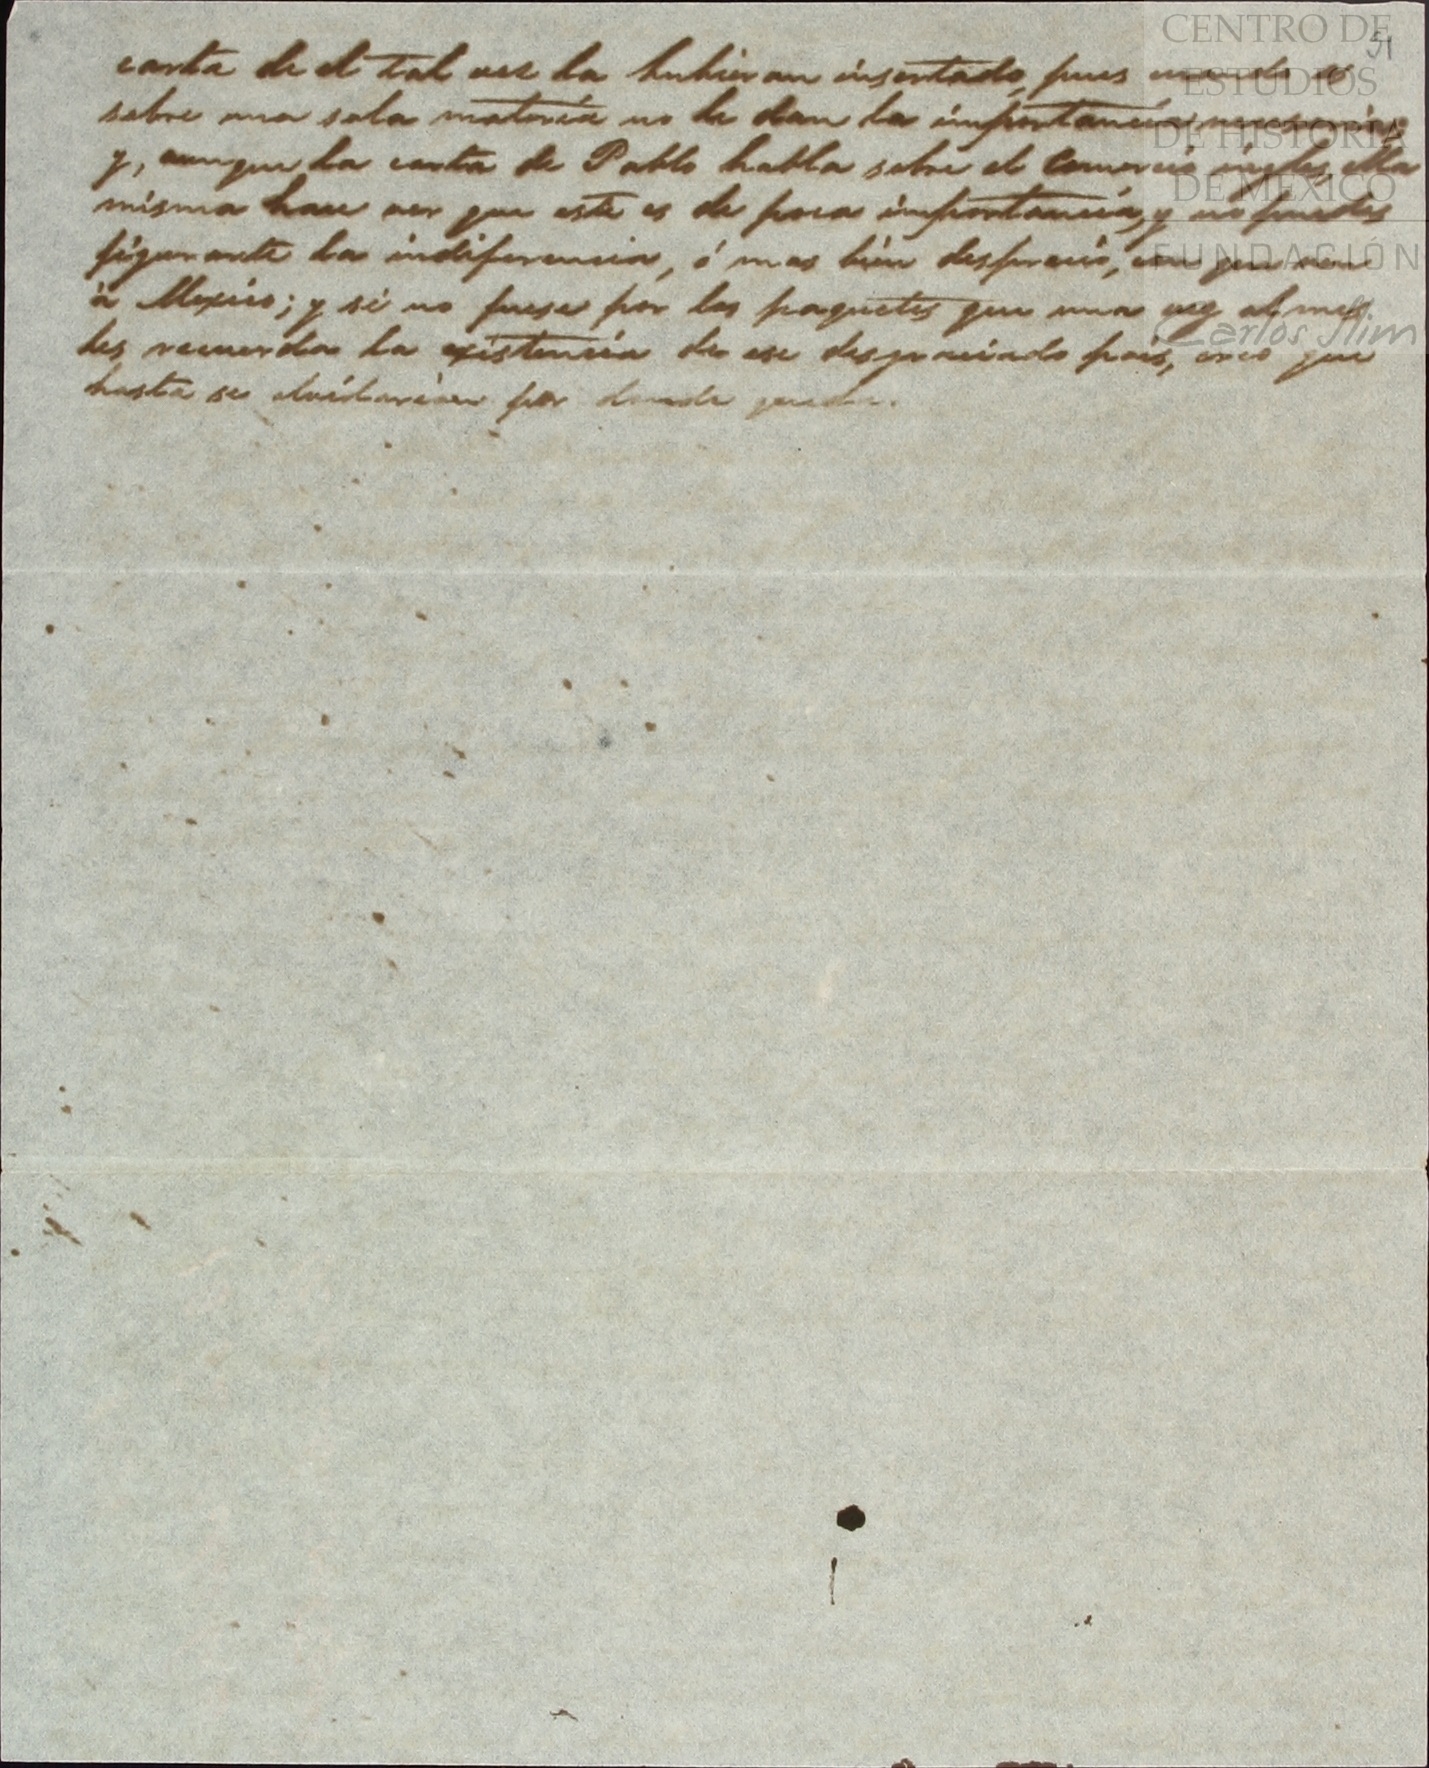 51
carta de el tal vez la hubieran insertado, pues cuando es
sobre una sola materia no le dan la importancia necesaria;
y, aunque la carta de Pablo habla sobre el Comercio ingles, ella
misma hace ver que este es de poca importancia, y no puedes
figurarte la indiferencia, ó mas bien desprecio, con que ven
à Mexico; y si no fuese por los paquetes que una vez al mes
les recuerda la existencia de ese desgraciado pais, creo que
hasta se olvidarian por donde queda.
CENTRO DE
ESTUDIOS
DE HISTORIA
DE MÉXICO
FUNDACIÓN
Carlos Slim